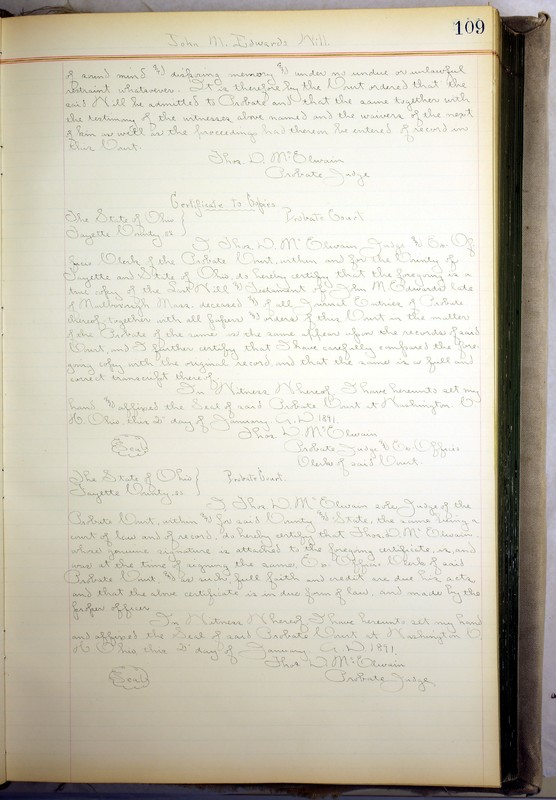 109
John M. Edwards Will.
of sound mind & disposing memory & under no undue or unlawful
restraint whatsoever. It is therefore by the Court ordered that the
said Will be admitted to Probate and that the same together with
the testimony of the witnesses above named and the waivers of the next
of kin as well as the proceedings had thereon be entered of record in
this Court.
Thos. D. McElwain
Probate Judge
Certificate to Copies
The State of Ohio } Probate Court
Fayette County, ss
I Thos. D. McElwain Judge & Ex. Of
ficio Clerk of the Probate Court, within and for the County of
Fayette and State of Ohio, do hereby certify that the foregoing is a
true copy of the Last Will & Testament of John M. Edwards late
of Marlborough Mass. deceased & of all Journal Entries of Probate
thereof, together with all papers & orders of this Court in the matter
of the Probate of the same as the same appears upon the records of said
Court, and I further certify that I have carefully compared the fore-
going copy with the original record, and that the same is a full and
correct transcript thereof.
In Witness Whereof I have hereunto set my
hand & affixed the Seal of said Probate Court at Washington C.
H. Ohio, this day of January A. D. 1891.
Thos. D. McElwain
Seal
Probate Judge & Ex. Officio
Clerk of said Court.
The State of Ohio } Probate Court.
Fayette County, ss.
I Thos. D. McElwain sole Judge of the
Probate Court, within & for said County & State, the same being a
court of law and of record, do hereby certify that Thos. D. McElwain
whose genuine signature is attached to the foregoing certificate, is, and
was at the time of signing the same, Ex. Officio Clerk of said
Probate Court, & as such full faith and credit are due his acts
and that the above certificate is in due form of law, and made by the
proper officer.
In Witness Whereof I have hereunto set my hand
and affixed the Seal of said Probate Court at Washington C.
H. Ohio this day of January A. D. 1891.
Thos. D. McElwain
Seal
Probate Judge